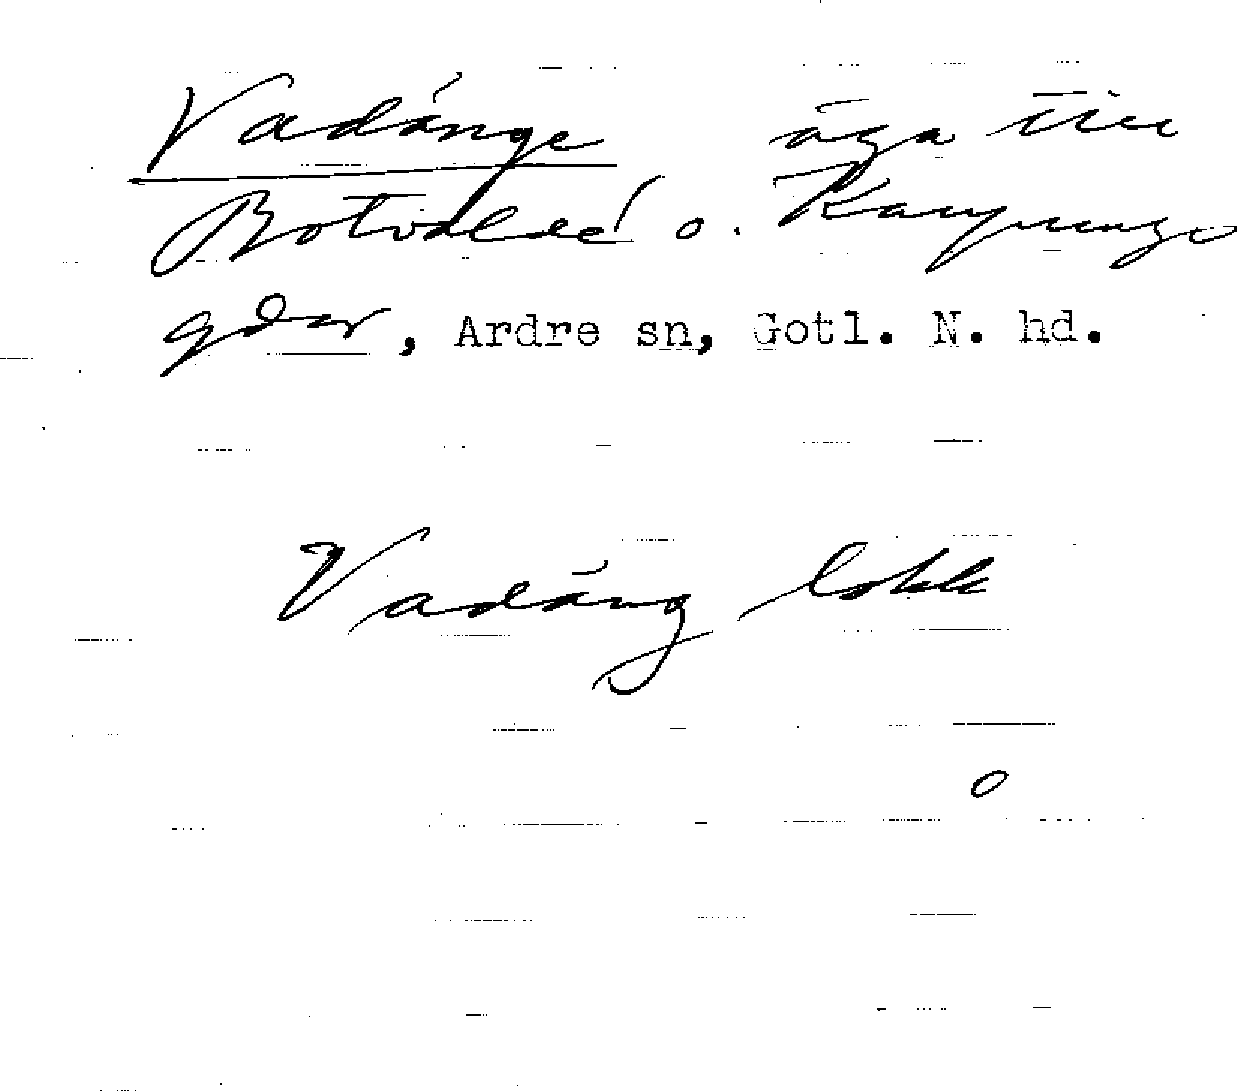 Vadänge äga till
Botvalde o. Kaupunge
gdar, Ardre sn, Gotl. N. hd.
Vadäng lokk
o